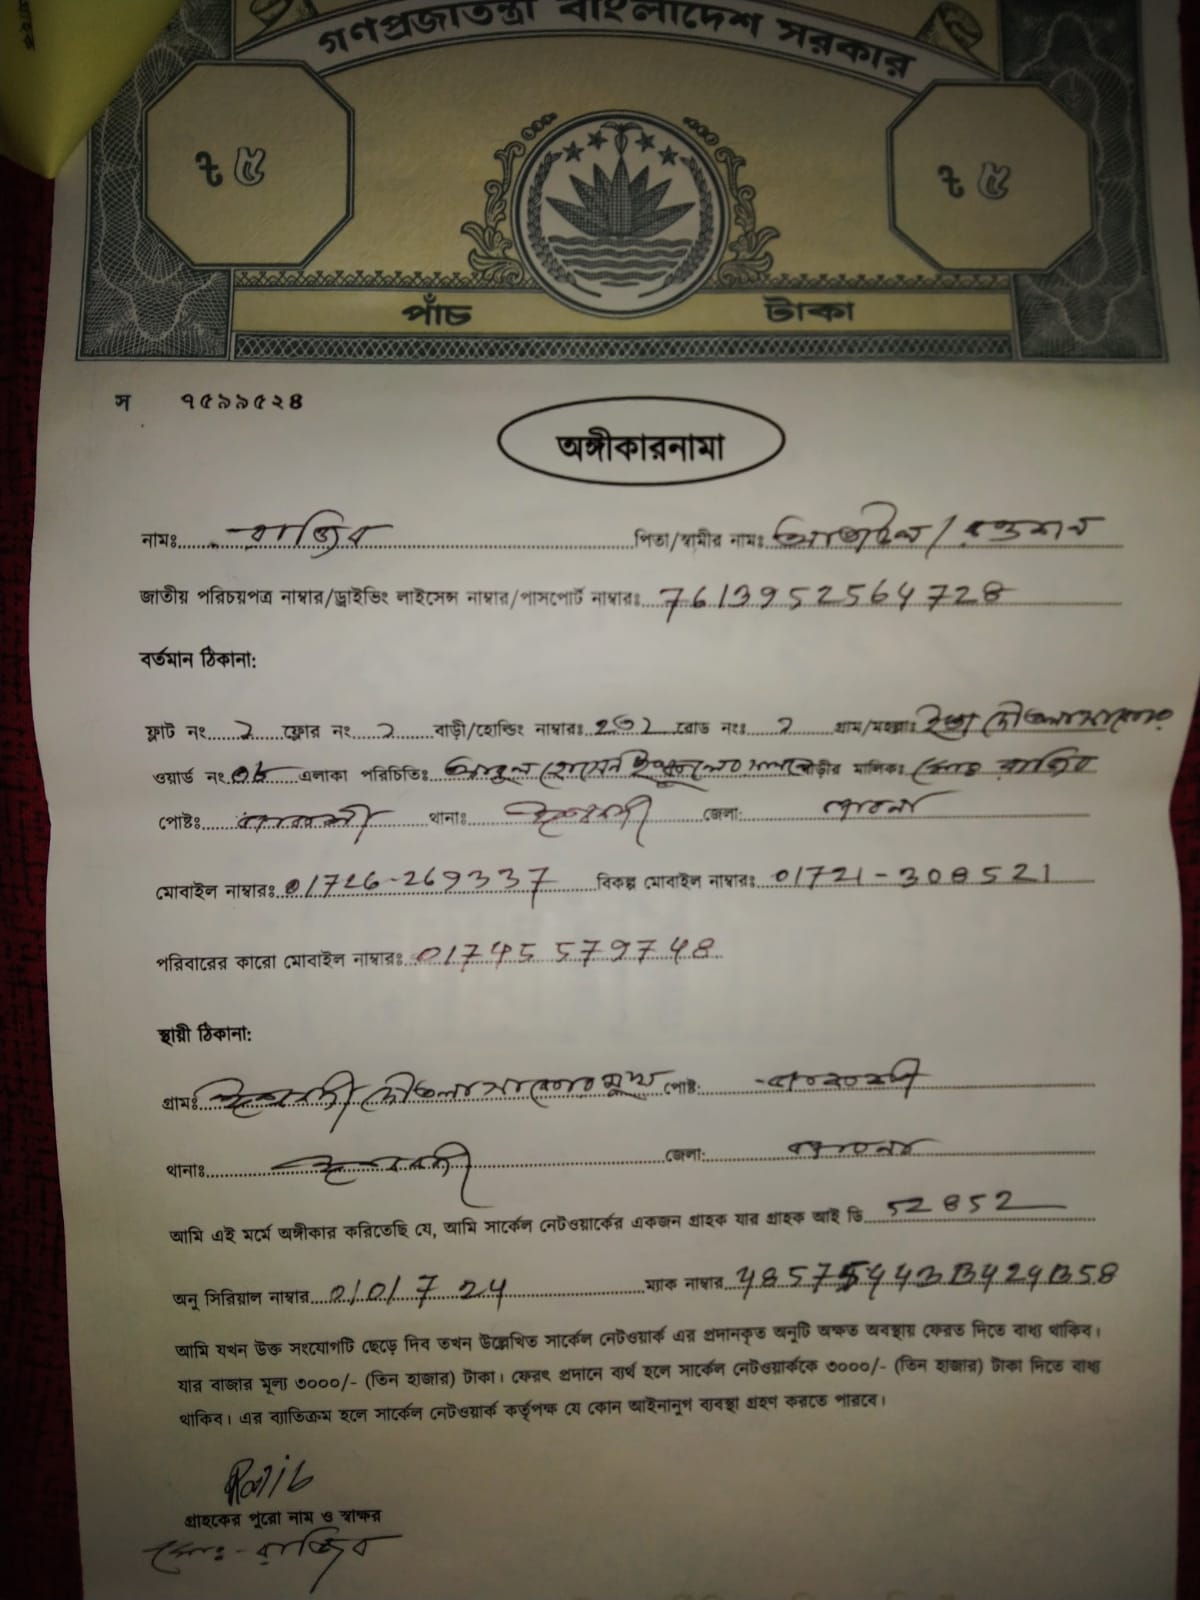 গণপ্রজাতন্ত্রী বাংলাদেশ সরকার
৳ ৫ ৳ ৫
পাঁচ টাকা
স ৭৫৯৯৫২৪
অঙ্গীকারনামা
নামঃ রাজিব পিতা/স্বামীর নামঃ
জাতীয় পরিচয়পত্র নাম্বার/ড্রাইভিং লাইসেন্স নাম্বার/পাসপোর্ট নাম্বারঃ 7613952564728
বর্তমান ঠিকানা:
ফ্লাট নং ২ ফ্লোর নং ২ বাড়ী/হোল্ডিং নাম্বারঃ রোড নংঃ ২ গ্রাম/মহল্লাঃ
ওয়ার্ড নং ০৮ এলাকা পরিচিতিঃ আবুল হোসেন বাড়ীর মালিকঃ মোঃ রাজিব
পোষ্টঃ থানাঃ ঈশ্বরদী জেলা: পাবনা
মোবাইল নাম্বারঃ 01726-269337 বিকল্প মোবাইল নাম্বারঃ 01721-308521
পরিবারের কারো মোবাইল নাম্বারঃ 01745579748
স্থায়ী ঠিকানা:
গ্রামঃ ঈশ্বরদী পোষ্ট:
থানাঃ ঈশ্বরদী জেলা: পাবনা
আমি এই মর্মে অঙ্গীকার করিতেছি যে, আমি সার্কেল নেটওয়ার্কের একজন গ্রাহক যার গ্রাহক আই ডি 52852
অনু সিরিয়াল নাম্বার 0101724 ম্যাক নাম্বার
আমি যখন উক্ত সংযোগটি ছেড়ে দিব তখন উল্লেখিত সার্কেল নেটওয়ার্ক এর প্রদানকৃত অনুটি অক্ষত অবস্থায় ফেরত দিতে বাধ্য থাকিব।
যার বাজার মূল্য ৩০০০/- (তিন হাজার) টাকা। ফেরৎ প্রদানে ব্যর্থ হলে সার্কেল নেটওয়ার্ককে ৩০০০/- (তিন হাজার) টাকা দিতে বাধ্য
থাকিব। এর ব্যাতিক্রম হলে সার্কেল নেটওয়ার্ক কর্তৃপক্ষ যে কোন আইনানুগ ব্যবস্থা গ্রহণ করতে পারবে।
Rajib
গ্রাহকের পুরো নাম ও স্বাক্ষর
মোঃ-রাজিব